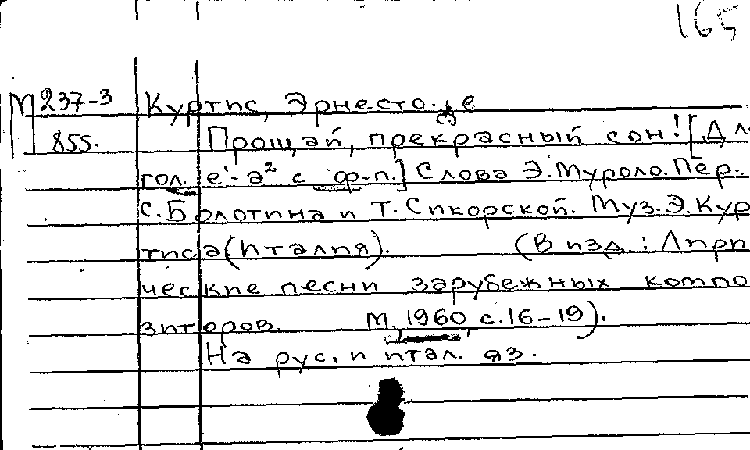 165
М 237-3 Куртис, Эрнесто де
855. Прощай, прекрасный сон! [Дл
гол. e'-a² с ф-п.] Слова Э.Муроло. Пер.
С.Болотина и Т.Сикорской. Муз.Э.Кур
тиса (Италия). (В изд: Лири
ческие песни зарубежных компо
зиторов. М, 1960, с.16-19).
На рус. и итал. яз.